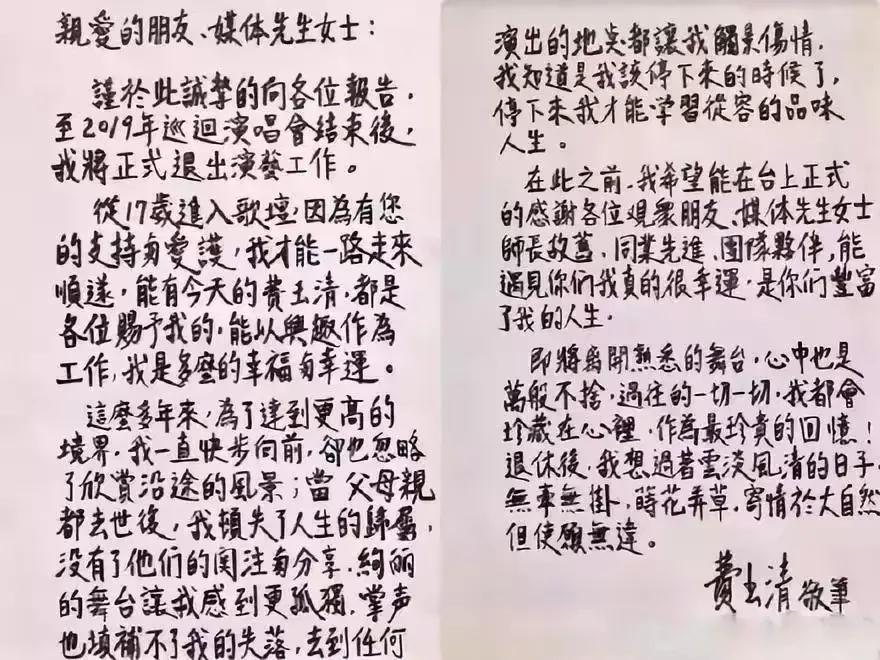 親愛的朋友、媒体先生女士：
謹於此誠摯的向各位報告，
至2019年巡迴演唱會結束後，
我將正式退出演藝工作。
從17歲進入歌壇，因為有您
的支持与愛護，我才能一路走來
順遂，能有今天的費玉清，都是
各位賜予我的，能以興趣作為
工作，我是多麼的幸福与幸運。
這麼多年來，為了達到更高的
境界，我一直快步向前，卻也忽略
了欣赏沿途的風景；當 父母親
都去世後，我頓失了人生的歸屬，
没有了他們的関注与分享，絢丽
的舞台讓我感到更孤獨，掌声
也填補不了我的失落，去到任何
演出的地点都讓我觸景傷情，
我知道是我該停下來的時候了，
停下來我才能学習從容的品味
人生。
在此之前，我希望能在台上正式
的感謝各位观眾朋友、媒体先生女士
師長故舊、同業先進、團隊夥伴，能
遇見你們我真的很幸運，是你們豐富
了我的人生．
即將离開熟悉的舞台，心中也是
萬般不捨，過往的一切一切，我都會
珍藏在心裡，作為最珍貴的回憶！
退休後，我想過著雲淡風清的日子，
無牽無掛，蒔花弄草，寄情於大自然
但使願無違。
費玉清 敬筆